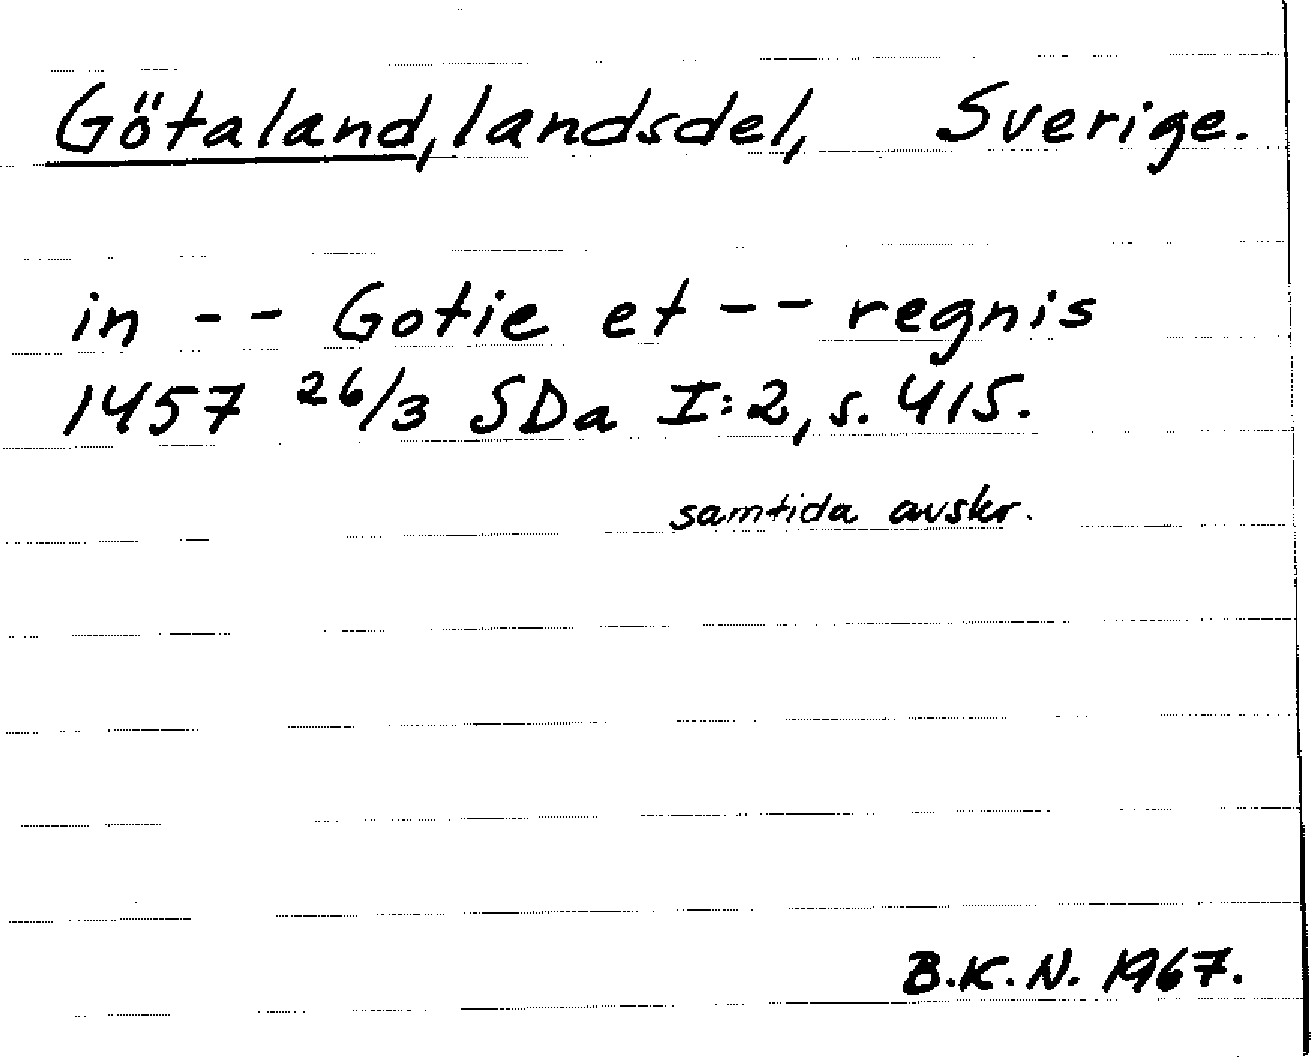 Götaland, landsdel, Sverige.
in -- Gotie et -- regnis
1457 26/3 SDa I:2, s. 415.
samtida avskr.
B.K.N. 1967.